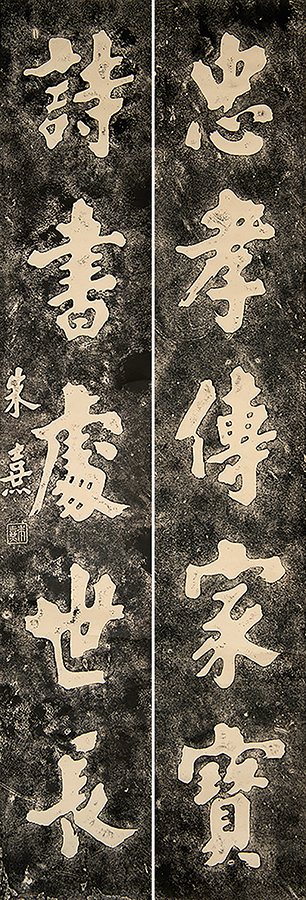 忠孝傳家寶
詩書處世長
朱熹